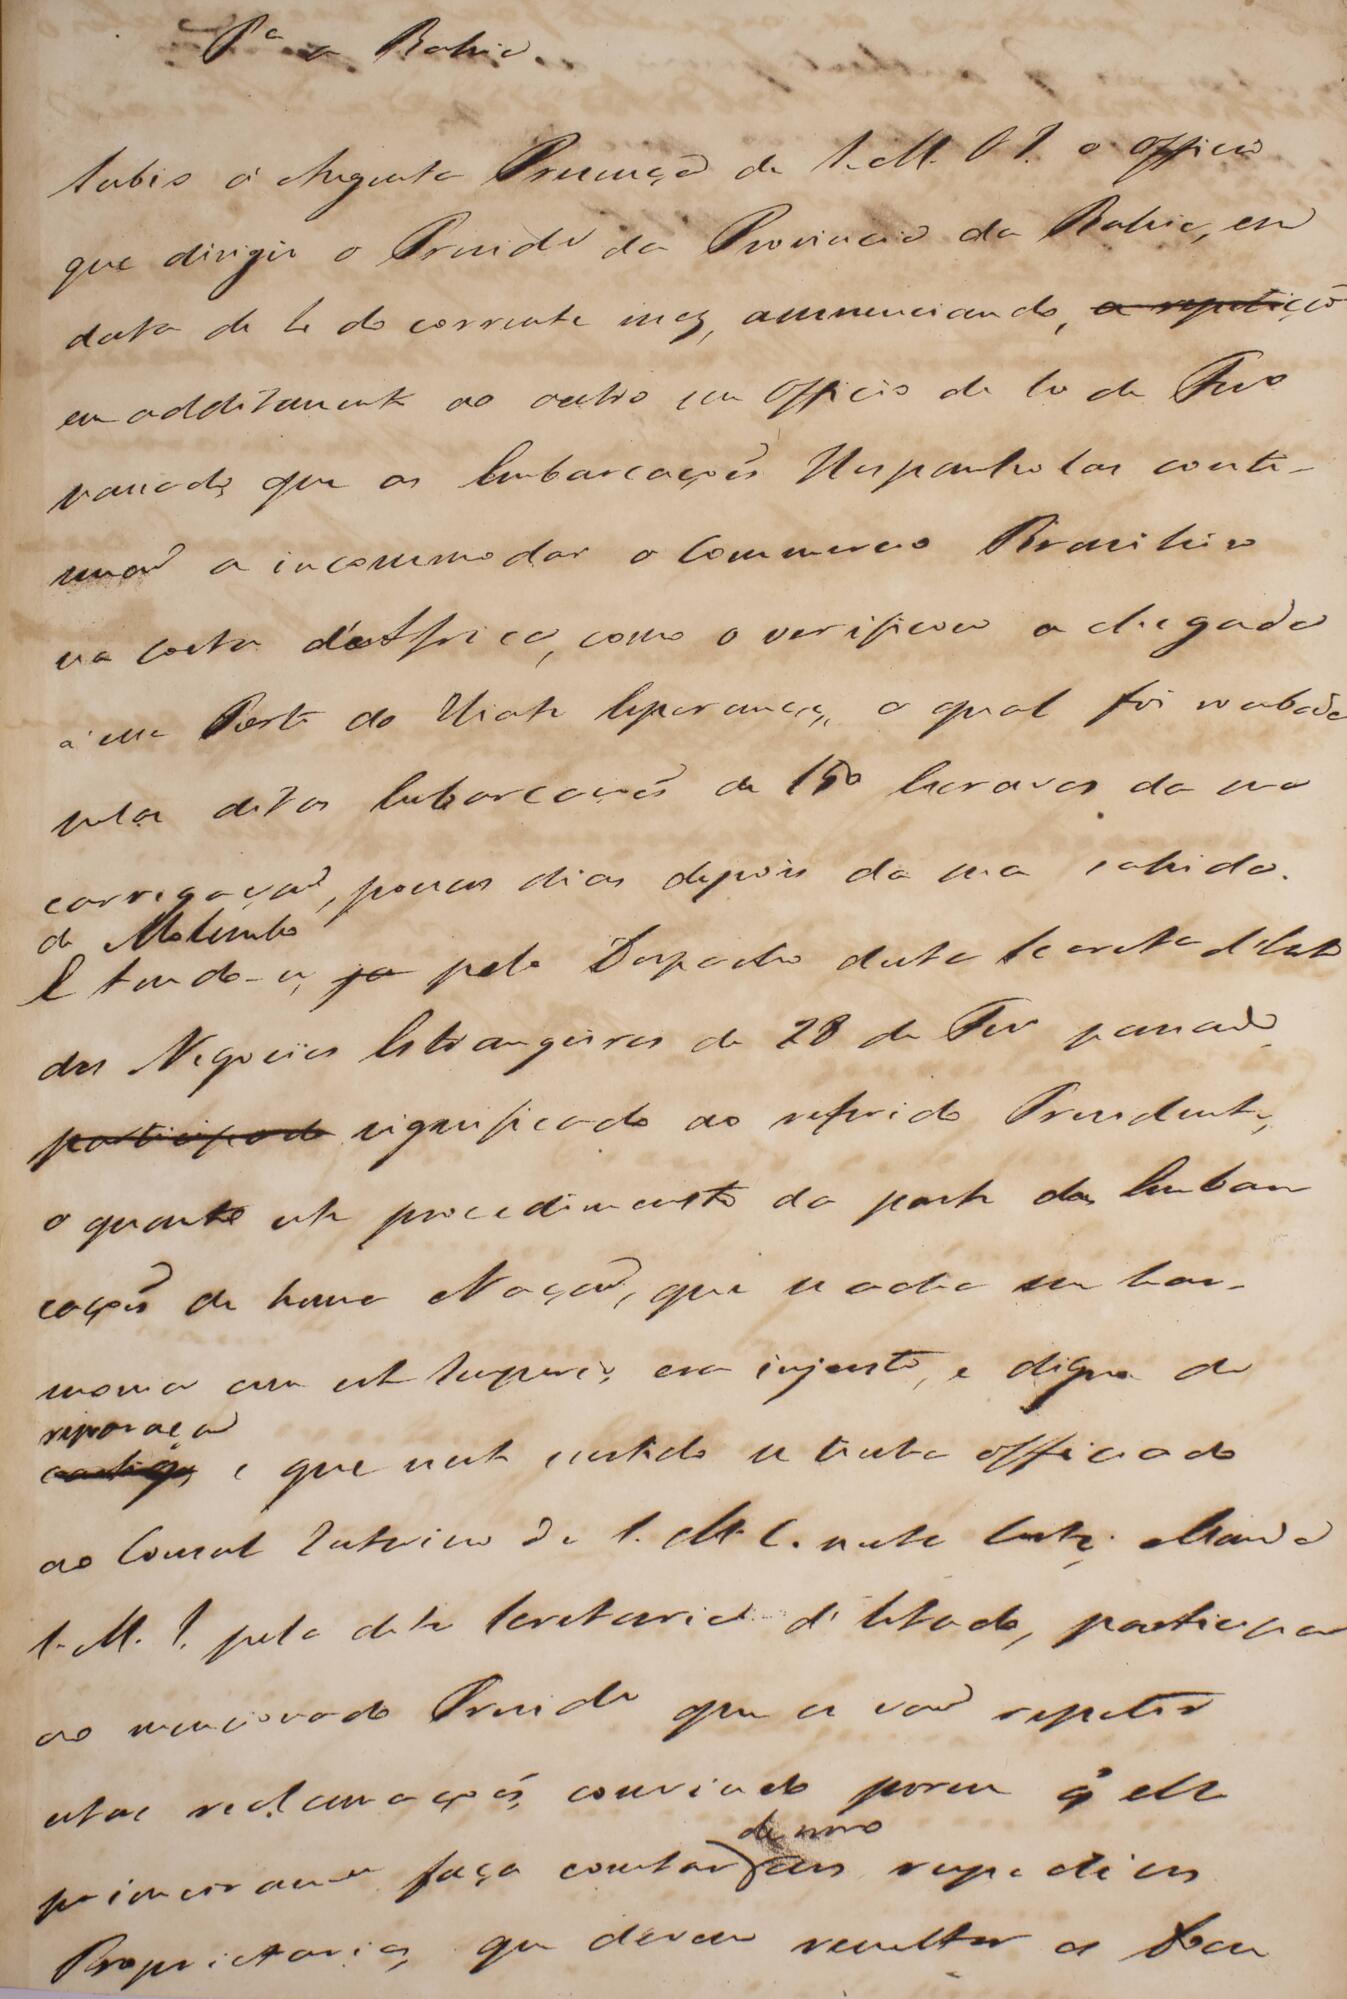 Pª a Bahia.
Subio á Augusta Presença de S. M. O I. o officio
que dirigio o Presidᵉ da Provincia da Bahia, em
data de do corrente mez, annunciando, a repetição
em additamento ao outro seu Officio de 10 de Fevº
passado, que as Embarcações Hespanholas conti-
nuaõ a incommodar o Commercio Brasileiro
na Costa d'Africa, como o verificou a chegada
á esse Porto do Hiate Esperança, o qual foi roubado
pelas ditas Embarcações de 150 Escravos da sua
carregaçaõ, poucos dias depois da sua sahida.
de Molembo
E tendo-se, ja pelo Despacho desta Secretª d'Estº
dos Negocios Estrangeiros de 28 de Fevº passado
participado significado ao referido Presidente,
o quanto este procedimento da parte das Embar
cações de huma Naçaõ, que se acha em har-
monia com este Imperio, era injusto, e digno de
reparaçaõ
castigo, e que neste sentido se tinha officiado
ao Consul Interino de S. M. C. nesta Corte; Manda
S. M. I. pela dita Secretaria d'Estado, participar
ao mencionado Presidᵉ que se vaõ repetir
estas reclamações, convindo porem q̃ elle
de novo
primeiramᵉ faça constar aos respectivos
Proprietarios, que devem remetter a seu